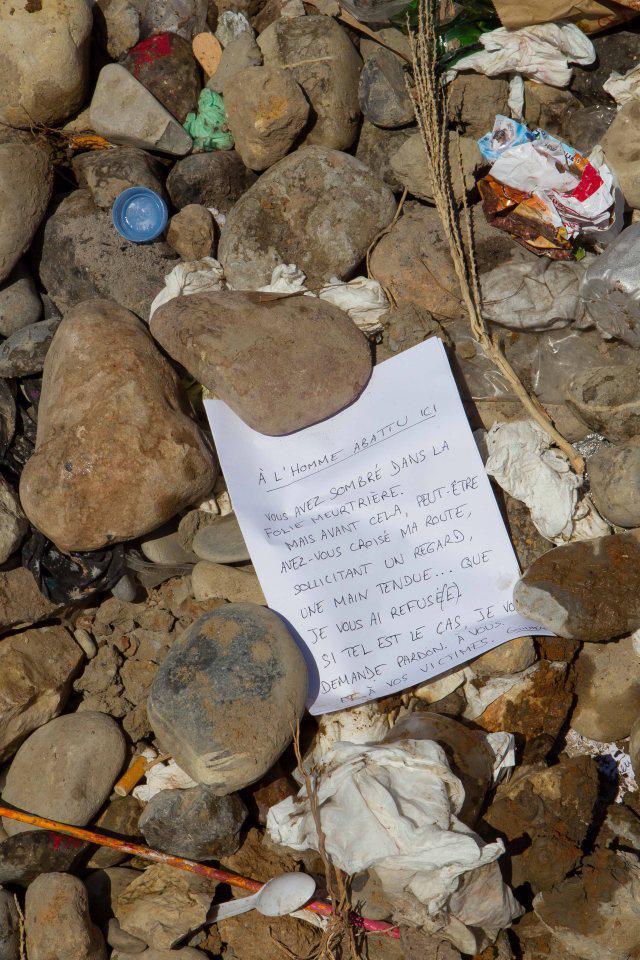 À L'HOMME ABATTU ICI
VOUS AVEZ SOMBRÉ DANS LA
FOLIE MEURTRIÈRE.
MAIS AVANT CELA, PEUT-ÊTRE
AVEZ-VOUS CROISÉ MA ROUTE,
SOLLICITANT UN REGARD,
UNE MAIN TENDUE... QUE
JE VOUS AI REFUSÉ(E).
SI TEL EST LE CAS, JE VO
DEMANDE PARDON. À VOUS
ET À VOS VICTIMES.